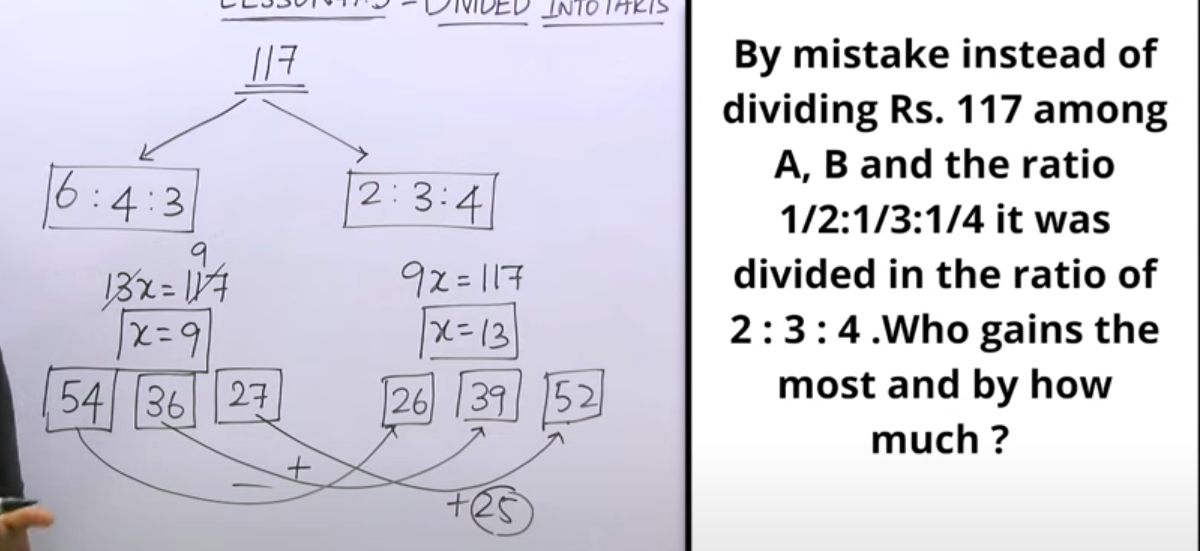 LESSON
- DIVIDED INTO PARTS
117
6 : 4 : 3
2 : 3 : 4
9
13x = 117
9x = 117
x = 9
x = 13
54 36 27
26 39 52
+
—
+25
By mistake instead of
dividing Rs. 117 among
A, B and the ratio
1/2:1/3:1/4 it was
divided in the ratio of
2 : 3 : 4 .Who gains the
most and by how
much ?